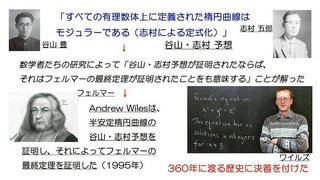 「すべての有理数体上に定義された楕円曲線は
モジュラーである（志村による定式化）」
志村 五郎
谷山 豊
谷山・志村 予想
数学者たちの研究によって「谷山・志村予想が証明されたならば、
それはフェルマーの最終定理が証明されたことをも意味する」ことが解った
フェルマー
Andrew Wilesは、
半安定楕円曲線の
谷山・志村予想を
証明し、それによってフェルマーの
最終定理を証明した（1995年）
Fermat's equation
xⁿ + yⁿ = zⁿ
This equation has no
solutions in integers
for n≥3
ワイルズ
360年に渡る歴史に決着を付けた